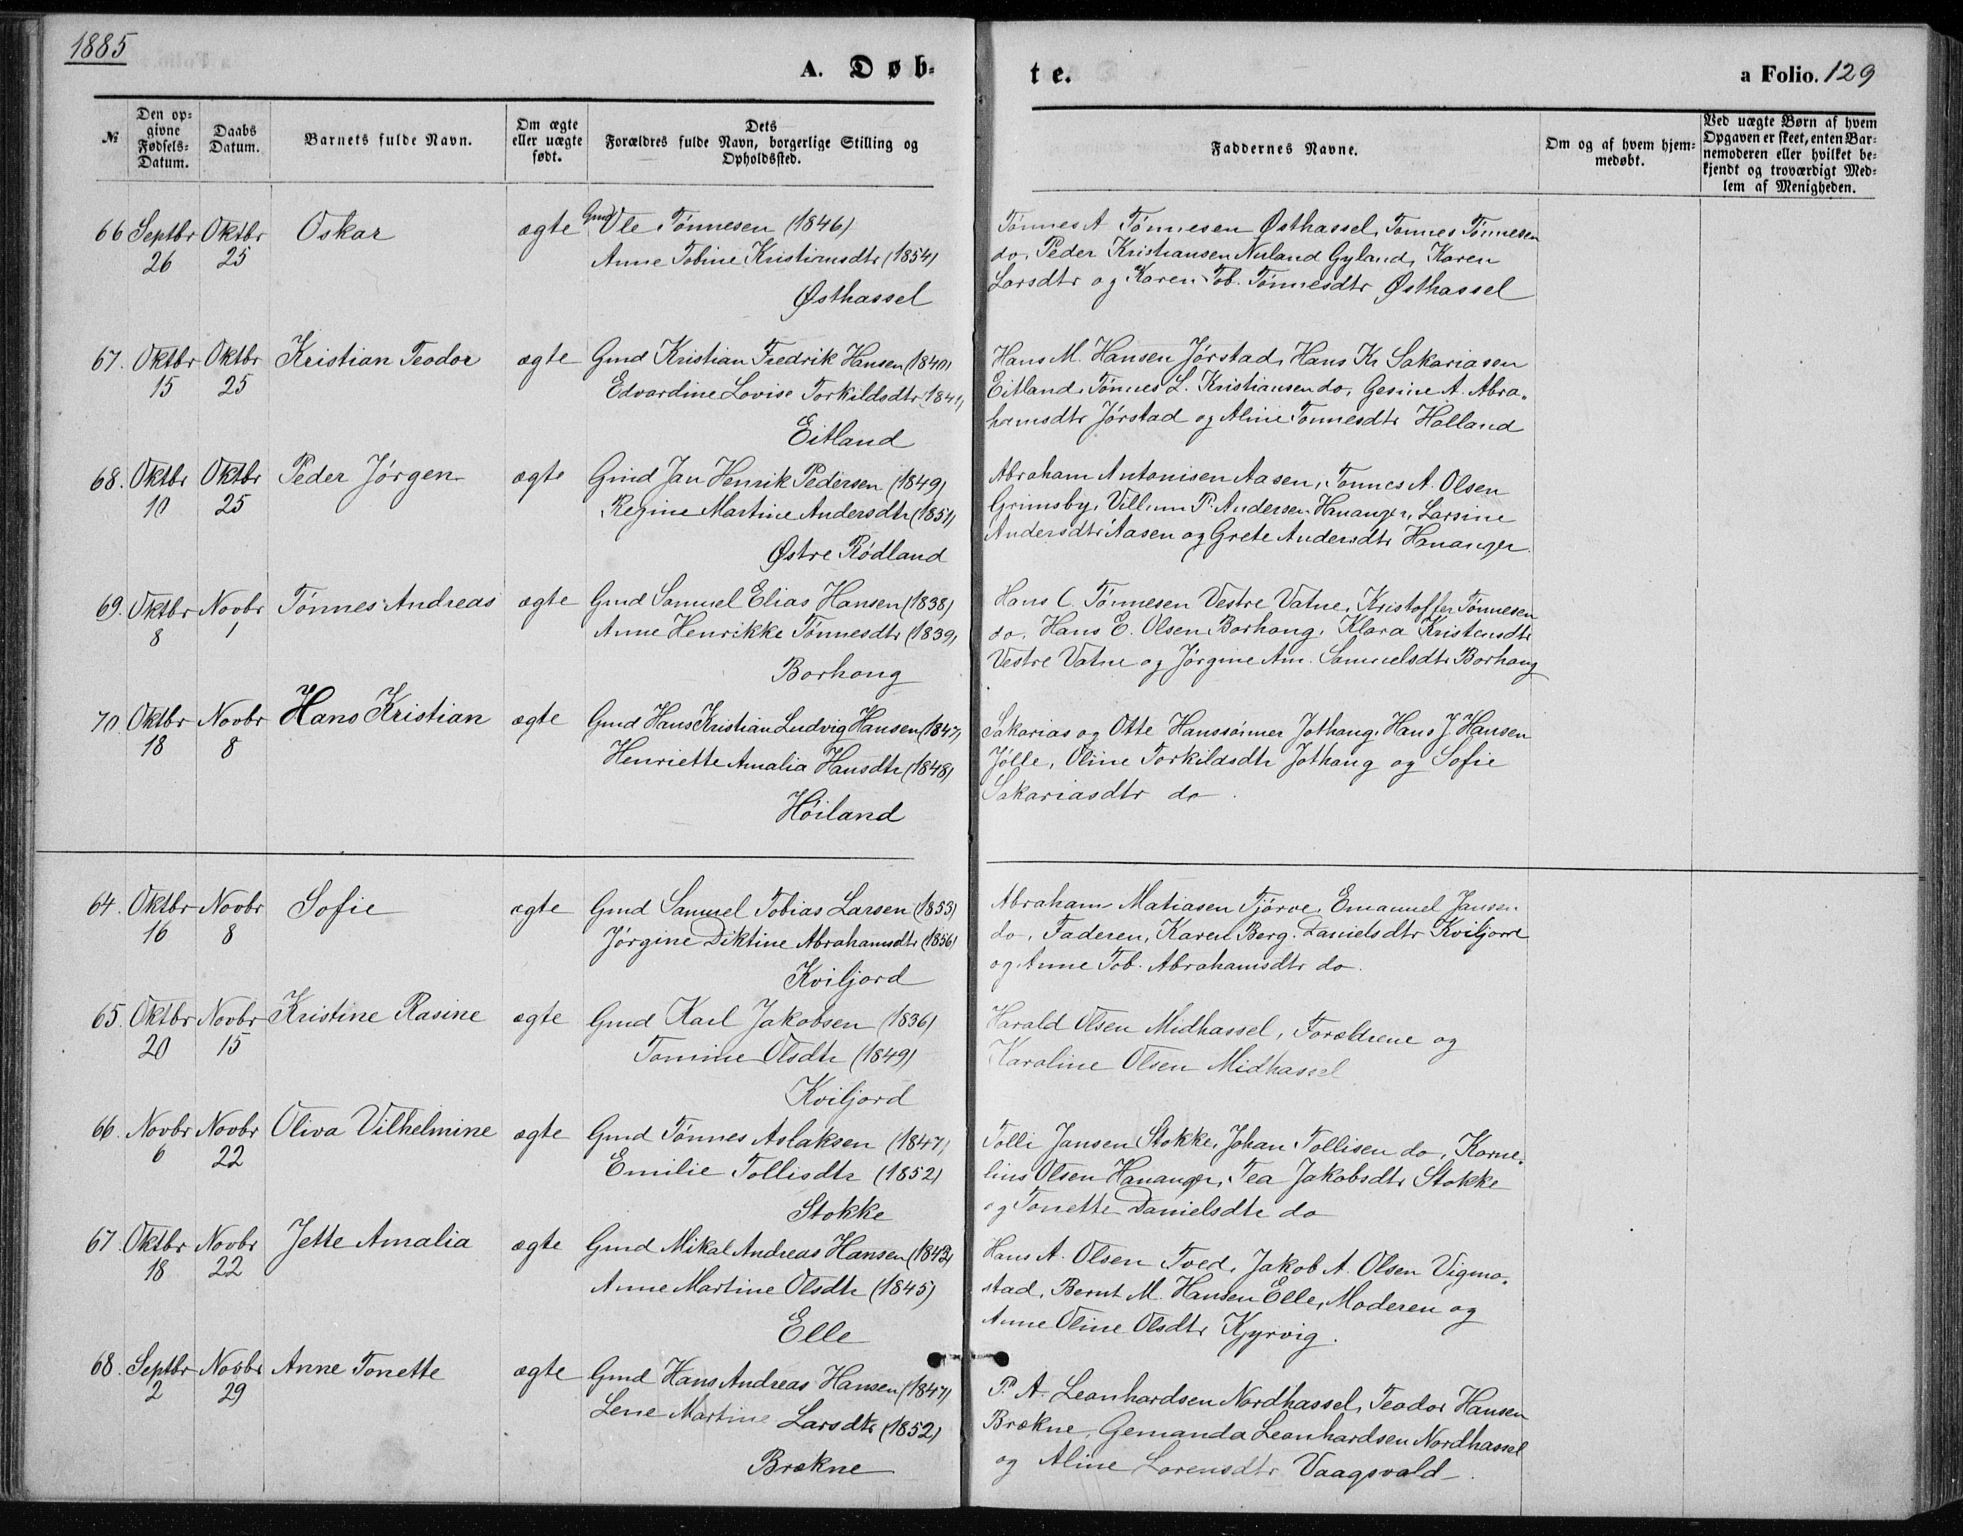 1885
A. Døb-
te.
a Folio. 129
№
Den op-
givne
Fødsels-
Datum.
Daabs
Datum.
Barnets fulde Navn.
Om ægte
eller uægte
født.
Dets
Forældres fulde Navn, borgerlige Stilling og
Opholdssted.
Faddernes Navne.
Om og af hvem hjem-
medøbt.
Ved uægte Børn af hvem
Opgaven er skeet, enten Bar-
nemoderen eller hvilket be-
kjendt og troværdigt Med-
lem af Menigheden.
66 Septbr Oktbr Oskar ægte Gmd Ole Tønnesen (1846)
26 25 Anne Tobine Kristiansdtr (1854)
Østhassel
Tønnes A Tønnesen Østhassel, Tønnes Tønnesen
do, Peder Kristiansen Nuland Gyland, Karen
Larsdtr og Karen Tob. Tønnesdtr Østhassel
67. Oktbr Oktbr Kristian Teodor ægte Gmd Kristian Fredrik Hansen (1840)
15 25 Edvardine Lovise Torkildsdtr (1841)
Eitland
Hans M. Hansen Jørstad, Hans Kr Sakariasen
Eitland, Tønnes L. Kristiansen do, Gesine A. Abra-
hamsdtr Jørstad og Aline Tønnesdtr Holland
68. Oktbr Oktbr Peder Jørgen ægte Gmd Jan Henrik Pedersen (1849)
10 25 Regine Martine Andersdtr (1851)
Østre Rødland
Abraham Antonisen Aasen, Tønnes A. Olsen
Grimsby, Villum P. Andersen Hananger, Larsine
Andersdtr Aasen og Grete Andersdtr Hananger.
69. Oktbr Novbr Tønnes Andreas ægte Gmd Samuel Elias Hansen (1838)
8 1 Anne Henrikke Tønnesdtr (1839)
Borhaug
Hans C. Tønnesen Vestre Vatne, Kristoffer Tønnesen
do, Hans E. Olsen Borhaug, Klara Kristensdtr
Vestre Vatne og Jørgine Am. Samuelsdtr Borhaug
70. Oktbr Novbr Hans Kristian ægte Gmd Hans Kristian Ludvig Hansen (1847)
18 8 Henriette Amalia Hansdtr (1848)
Høiland
Sakarias og Otte Hanssønner Jøthaug, Hans J. Hansen
Jølle, Oline Torkildsdtr Jøthaug og Sofie
Sakariasdtr do.
64. Oktbr Novbr Sofie ægte Gmd Samuel Tobias Larsen (1855)
16 8 Jørgine Diktine Abrahamsdtr (1856)
Kviljord
Abraham Matiasen Tjørve, Emanuel Jansen
do, Faderen, Karen Berg. Danielsdtr Kviljord
og Anne Tob. Abrahamsdtr do.
65. Oktbr Novbr Kristine Rasine ægte Gmd Karl Jakobsen (1836)
20 15 Tomine Olsdtr (1849)
Kviljord
Harald Olsen Midhassel, Forældrene og
Karoline Olsen Midhassel
66. Novbr Novbr Oliva Vilhelmine ægte Gmd Tønnes Aslaksen (1847)
6 22 Emilie Tollisdtr (1852)
Stokke
Tolli Jansen Stokke, Johan Tollisen do, Korne-
lius Olsen Hananger, Tea Jakobsdtr Stokke
og Tonette Danielsdtr do
67. Oktbr Novbr Jette Amalia ægte Gmd Mikal Andreas Hansen (1843)
18 22 Anne Martine Olsdtr (1845)
Elle
Hans A. Olsen Tved, Jakob A. Olsen Vigmo-
stad, Bernt M. Hansen Elle, Moderen og
Anne Oline Olsdtr Kjyrvig.
68. Septbr Novbr Anne Tonette ægte Gmd Hans Andreas Hansen (1847)
2 29 Lene Martine Larsdtr (1852)
Brekne
P. A. Leonhardsen Nordhassel, Teodor Hansen
Brekne, Gemanda Leonhardsen Nordhassel
og Aline Lorensdtr Vaagsvold.